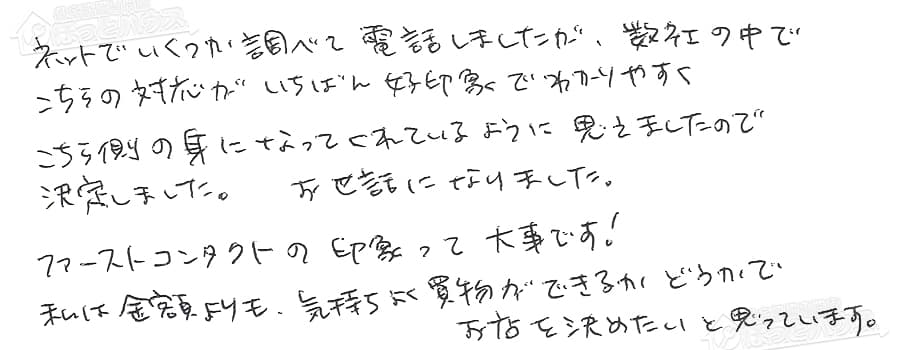 ネットでいくつか調べて電話しましたが、数社の中で
こちらの対応がいちばん好印象でわかりやすく
こちら側の身になってくれているように思えましたので
決定しました。 お世話になりました。
ファーストコンタクトの印象って大事です!
私は金額よりも、気持ちよく買物ができるかどうかで
お店を決めたいと思っています。